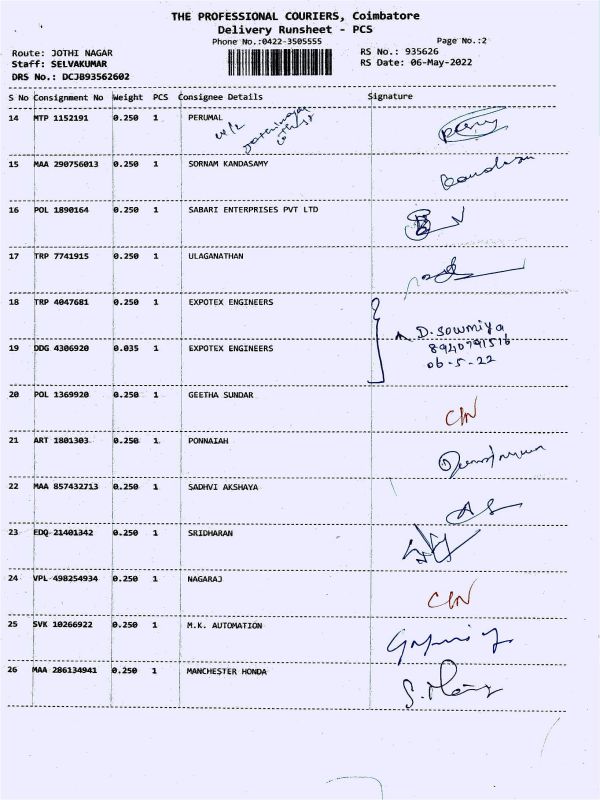 THE PROFESSIONAL COURIERS, Coimbatore
Delivery Runsheet - PCS
Phone No.:0422-3505555
Page No.:2
Route: JOTHI NAGAR
RS No.: 935626
Staff: SELVAKUMAR
RS Date: 06-May-2022
DRS No.: DCJB93562602
S No Consignment No Weight PCS Consignee Details Signature
14 MTP 1152191 0.250 1 PERUMAL
15 MAA 290756013 0.250 1 SORNAM KANDASAMY
16 POL 1890164 0.250 1 SABARI ENTERPRISES PVT LTD
17 TRP 7741915 0.250 1 ULAGANATHAN
18 TRP 4047681 0.250 1 EXPOTEX ENGINEERS
D. Sowmiya
19 DDG 4306920 0.035 1 EXPOTEX ENGINEERS
8940791516
06-5-22
20 POL 1369920 0.250 1 GEETHA SUNDAR
21 ART 1801303 0.250 1 PONNAIAH
22 MAA 857432713 0.250 1 SADHVI AKSHAYA
23 EDQ 21401342 0.250 1 SRIDHARAN
24 VPL 498254934 0.250 1 NAGARAJ
25 SVK 10266922 0.250 1 M.K. AUTOMATION
26 MAA 286134941 0.250 1 MANCHESTER HONDA